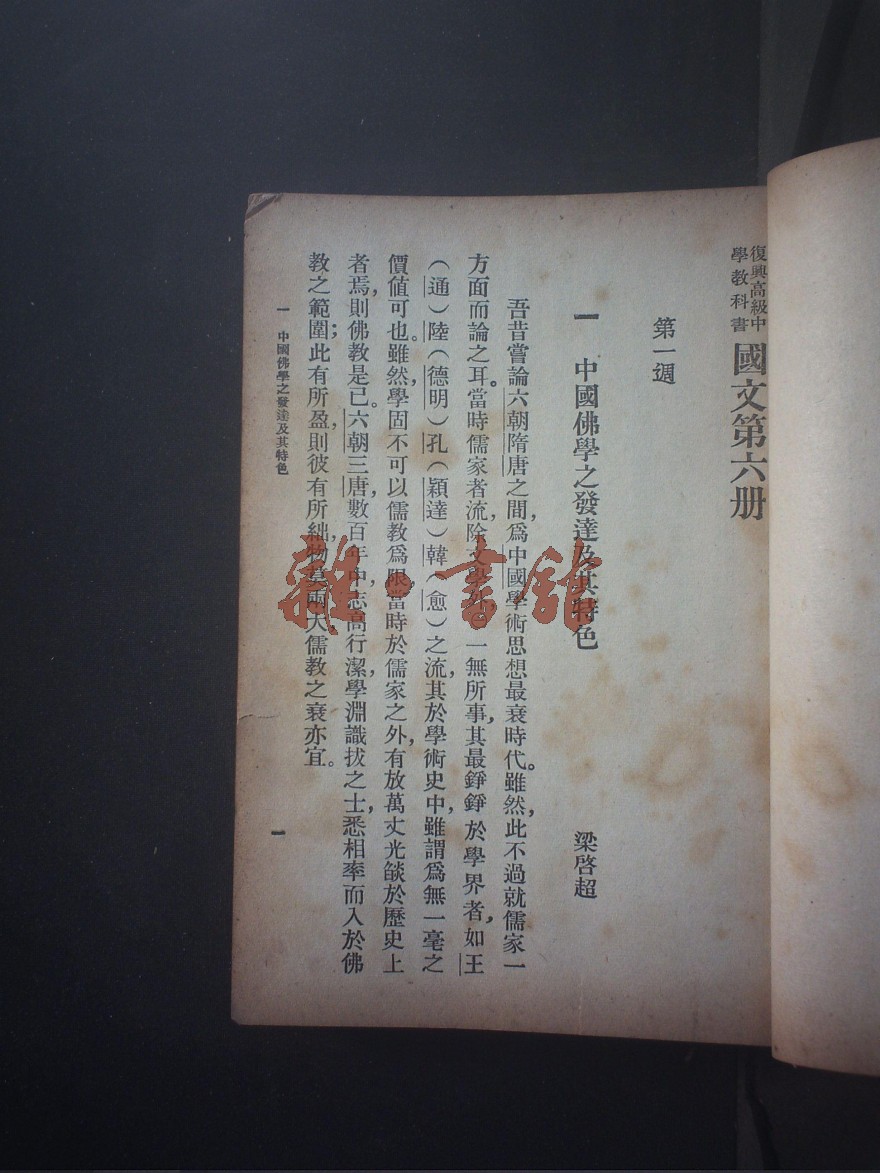 復興高級中學教科書 國文第六册
第一週
一　中國佛學之發達及其特色　梁啓超
吾昔嘗論六朝隋唐之間，爲中國學術思想最衰時代。雖然，此不過就儒家一
方面而論之耳。當時儒家者流，除文學外，一無所事，其最錚錚於學界者，如王
（通）陸（德明）孔（穎達）韓（愈）之流，其於學術史中，雖謂爲無一毫之
價値可也。雖然，學固不可以儒教爲限，當時於儒家之外，有放萬丈光燄於歷史上
者焉，則佛教是已。六朝三唐，數百年中，志高行潔，學淵識拔之士，悉相率而入於佛
教之範圍；此有所盈，則彼有所絀，物莫兩大，儒教之衰亦宜。
一　中國佛學之發達及其特色
一
雜·書館